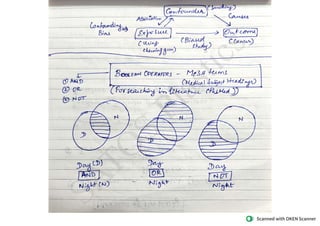 Confounder (Smoking)
Association
Causes
Confounding Bias
Exposure
Outcome
(Using chewing gum)
(Biased study)
(Cancer)
BOOLEAN OPERATORS - MeSH terms
(Medical Subject Headings)
① AND
② OR
③ NOT
(For searching in literature (PubMed))
N
N
N
D
D
D
Day (D)
Day
Day
AND
OR
NOT
Night (N)
Night
Night
Scanned with OKEN Scanner